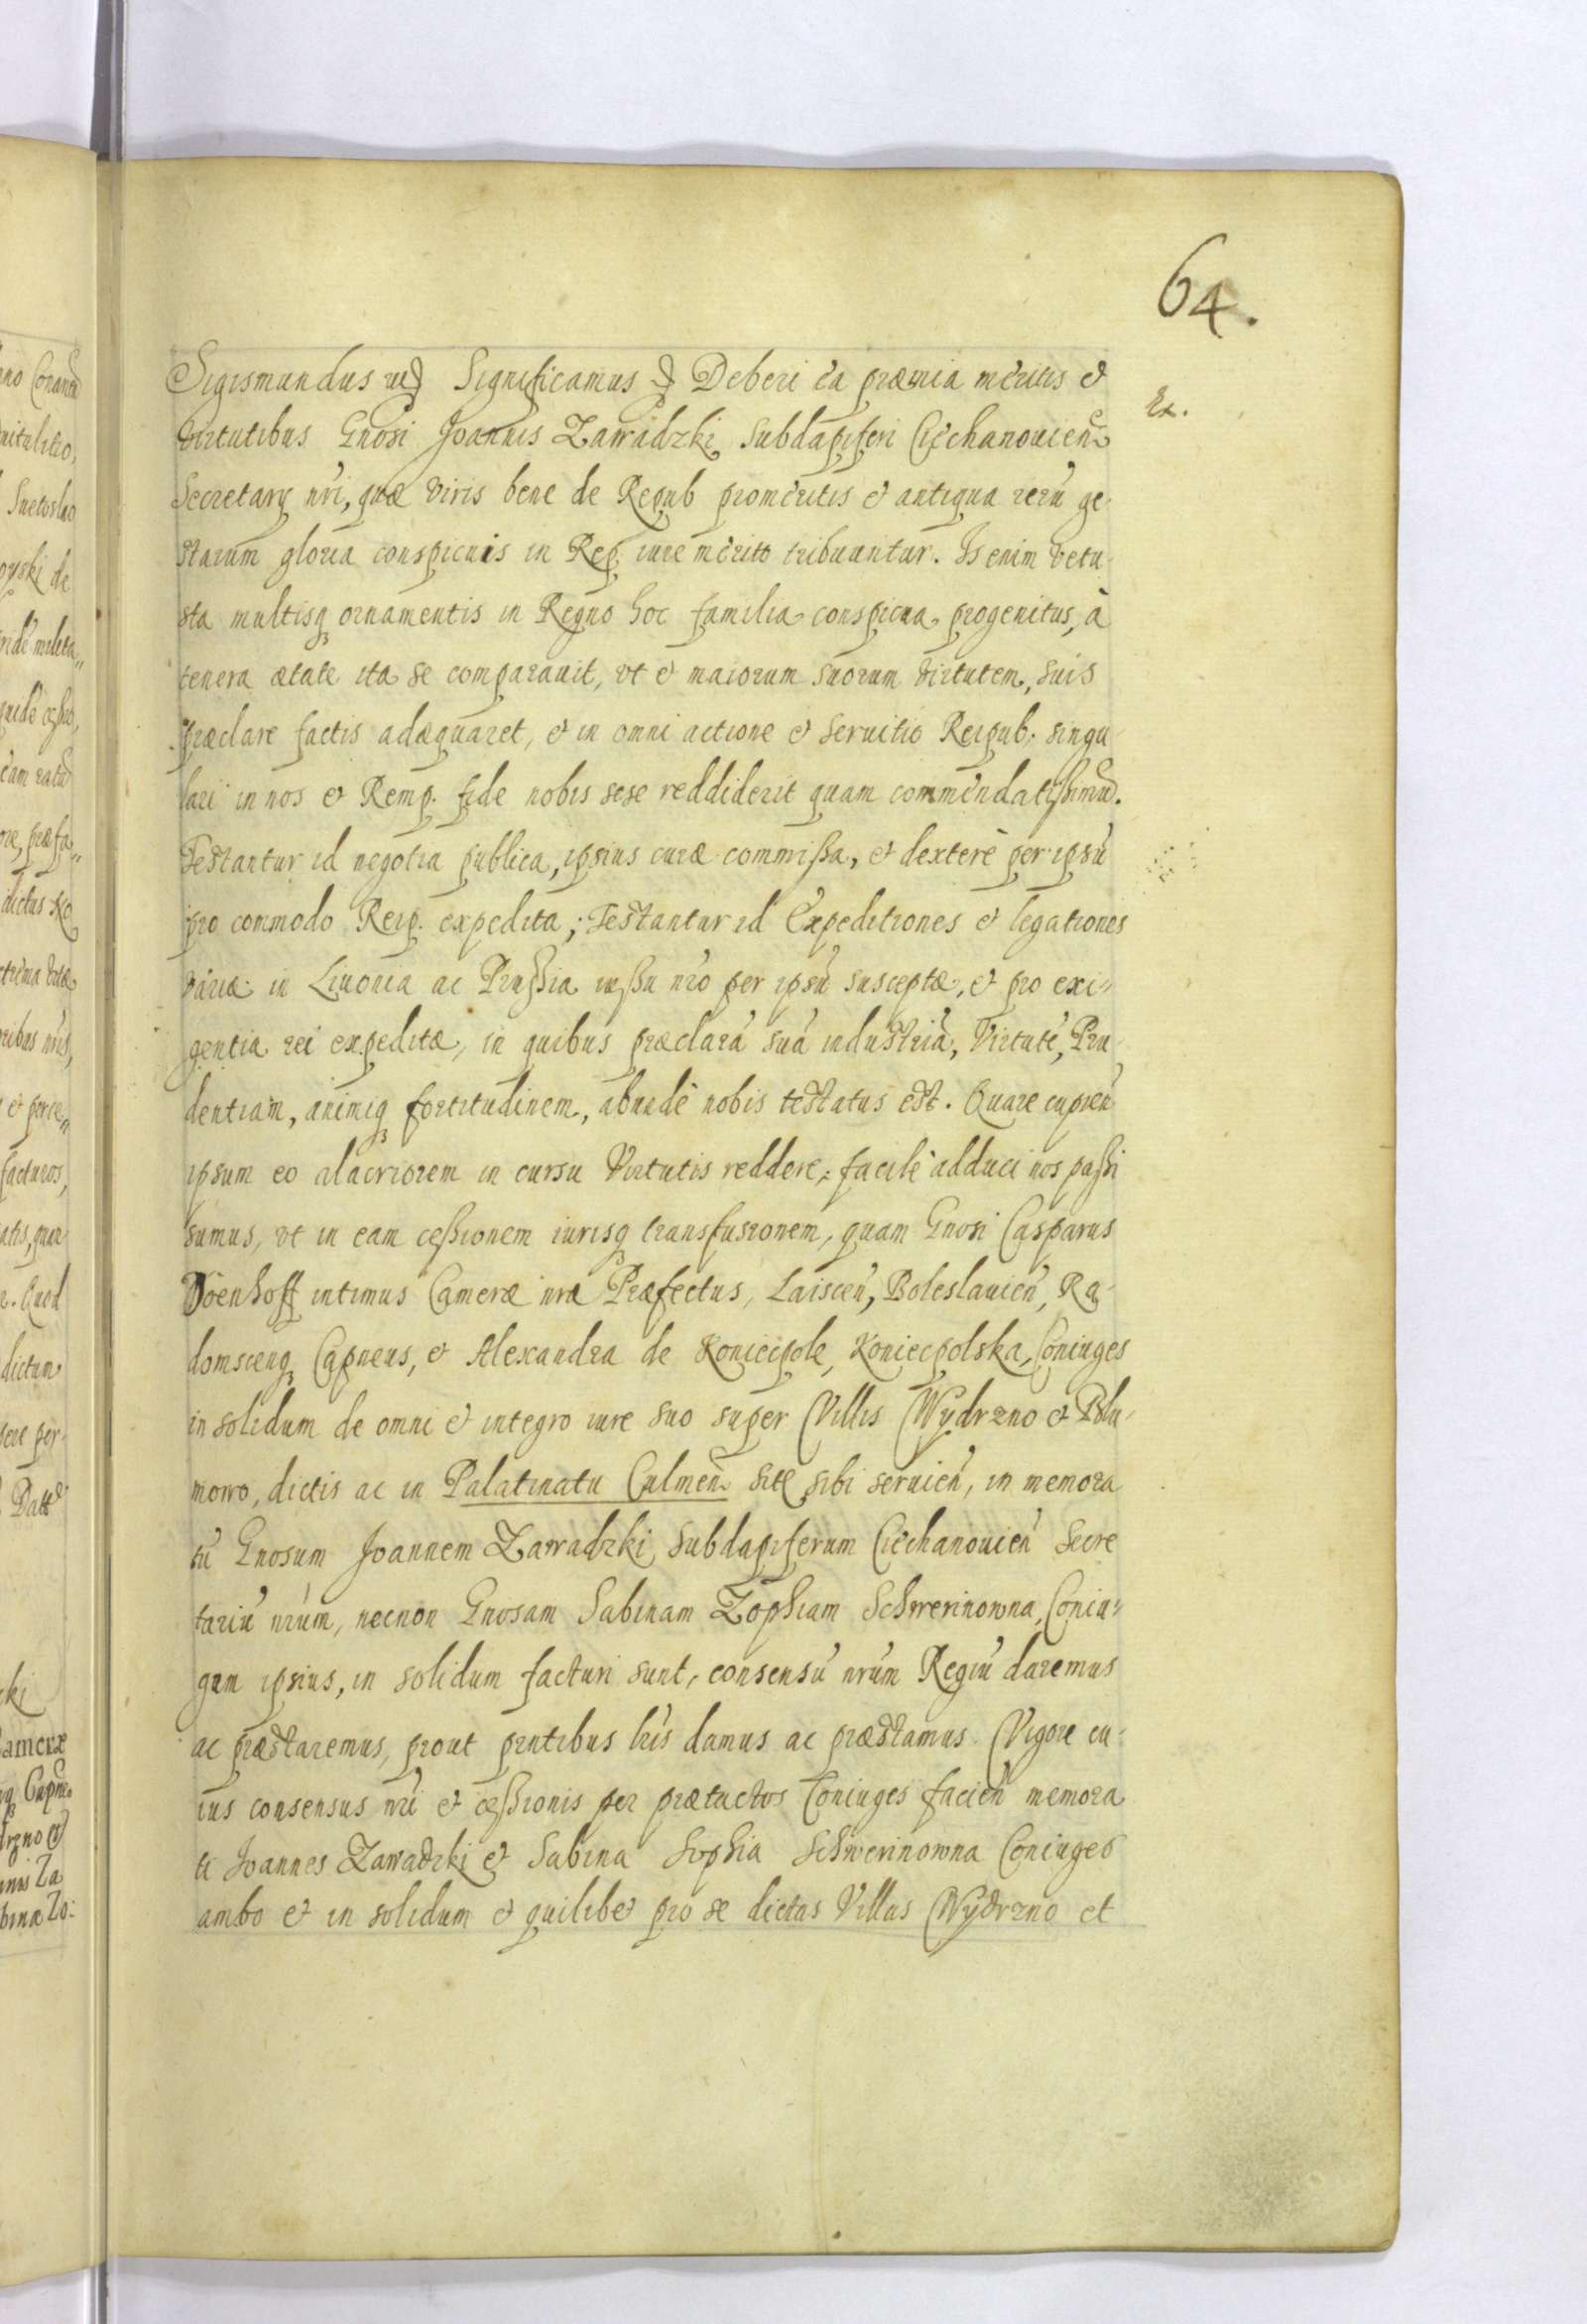 64.
Sigismundus etc Significamus etc Deberi ea præmia meritis et
Ex.
virtutibus Gnosi Joannis Zawadzki Subdapiferi Ciechanouien
Secretarij nri, quæ viris bene de Repub promeritis et antiqua rerũ ge-
starum gloria conspicuis in Rep. iure merito tribuuntur. Is enim vetu-
sta multisq ornamentis in Regno hoc familia conspicua progenitus, à
tenera ætate ita se comparauit, vt et maiorum suorum virtutem, suis
præclare factis adæquaret, et in omni actione et seruitio Reipub. singu-
lari in nos et Remp. fide nobis sese reddiderit quam commendatissimũ.
Testantur id negotia publica, ipsius curæ commissa, et dexterè per ipsũ
pro commodo Reip. expedita; Testantur id Expeditiones et legationes
variæ in Liuonia ac Prussia iussu nro per ipsũ susceptæ, et pro exi-
gentia rei expeditæ, in quibus præclarã suã industriã, Virtutẽ, Pru
dentiam, animiq fortitudinem, abundè nobis testatus est. Quare cupien
ipsum eo alacriorem in cursu Virtutis reddere, facilè adduci nos passi
sumus, vt in eam cessionem iurisq transfusionem, quam Gnosi Casparus
Doenhoff intimus Cameræ nræ Præfectus, Laiscen, Boleslauien, Ra-
domscenq Capneus, et Alexandra de Koniecpole, Koniecpolska, Coniuges
in solidum de omni et integro iure suo super Villis Wydrzno et Plu-
mowo, dictis ac in Palatinatu Culmen sitis sibi seruien, in memora
tũ Gnosum Joannem Zawadzki Subdapiferum Ciechanouien Secre
tariũ nrum, necnon Gnosam Sabinam Zophiam Schwerinowna, Coniu-
gem ipsius, in solidum facturi sunt, consensũ nrum Regiũ daremus
ac præstaremus, prout pntibus lris damus ac præstamus. Vigore cu-
ius consensus nri et cessionis per prætactos Coniuges facien memora
ti Joannes Zawadzki et Sabina Sophia Schwerinowna Coniuges
ambo et in solidum et quilibet pro se dictas Villas Wydrzno et